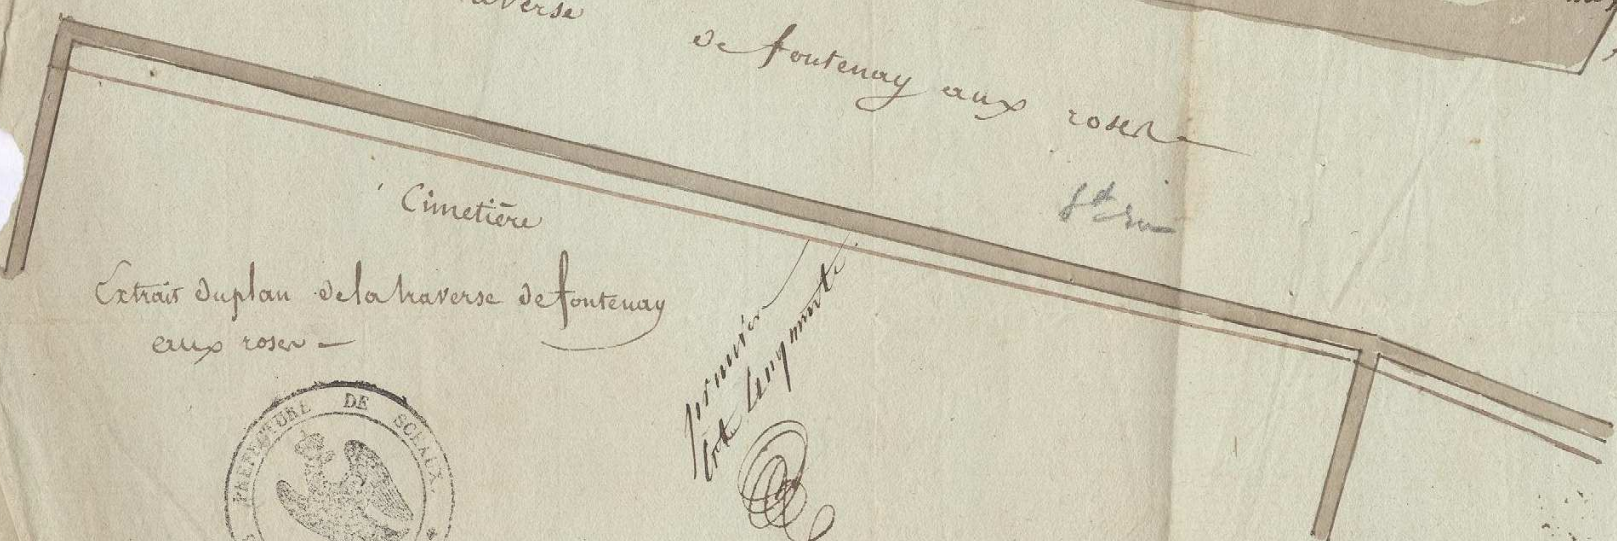 de fontenay aux roses
Cimetière
Extrait du plan de la traverse de fontenay
aux roses
PREFECTURE DE SCEAUX
premier